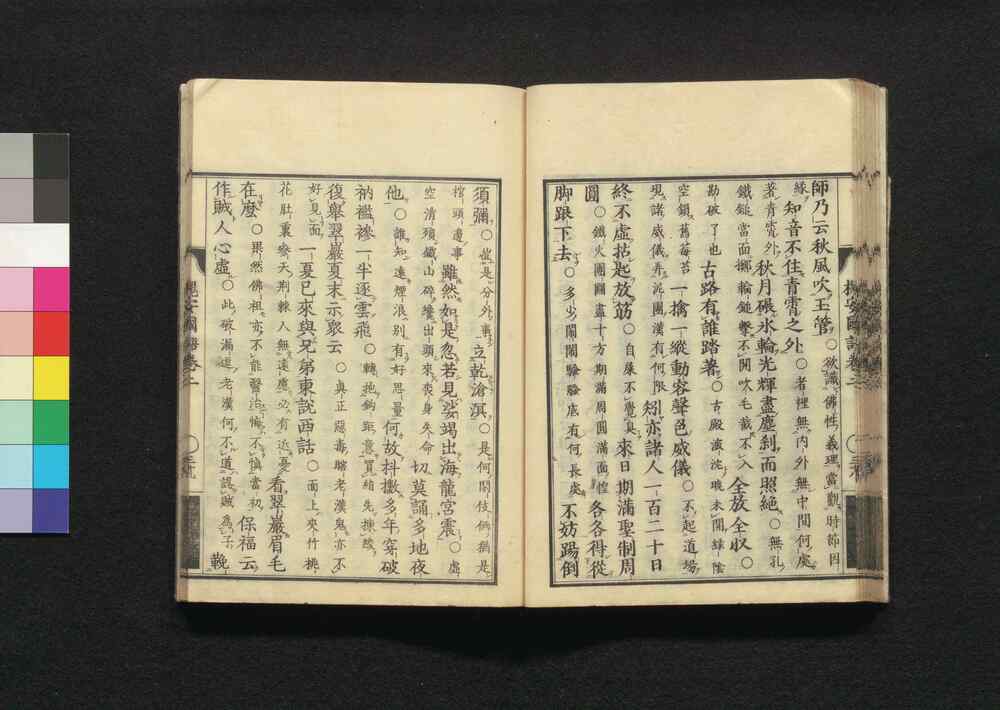 師乃云秋風吹玉管○欲識佛性義理當觀時節因
緣知音不住青霄之外○者裡無內外無中間何處
著青霄外秋月碾氷輪光輝盡塵刹而照絶○無孔
鐵鎚當面擲輪鎚擊不開吹毛截不入全放全収○
勘破了也古路有誰踏著○古殿
空鎖舊莓苔一擒一縱動容聲色威儀○不起道場
現諸威儀弄泥團漢有何限矧亦諸人一百二十日
終不虛拈匙放筯○自屎不覺臭來日期滿聖制周
圓○鐵火團團畫十方期滿周圓滿面惶各各得從
脚跟下去○多少鬧鬧驗驗底有何長處不妨踢倒
須彌○豈是分外事立乾滄溟○是何閑伎倆猶是
棺頭邊事雖然如是忽若見娑竭出海龍宮震○虛
空消殞鐵山碎纔出頭來喪身失命切莫誦多地夜
他○誰知遠煙浪別有好思量何故抖擻多年穿破
衲襤襂一半逐雲飛○轉拋鉤距意買帽先揀
復舉翠巖夏末示眾云○真正惡毒瞎老漢鬼亦不
好見面一夏已來與兄弟東說西話○面上夾竹桃
花肚裏參天荊棘人無遠慮必有近憂看翠巖眉毛
在麼○果然佛祖亦不能醫治悔不慎當初保福云
作賊人心虛○此破漏逗老漢何不道誤賊爲子